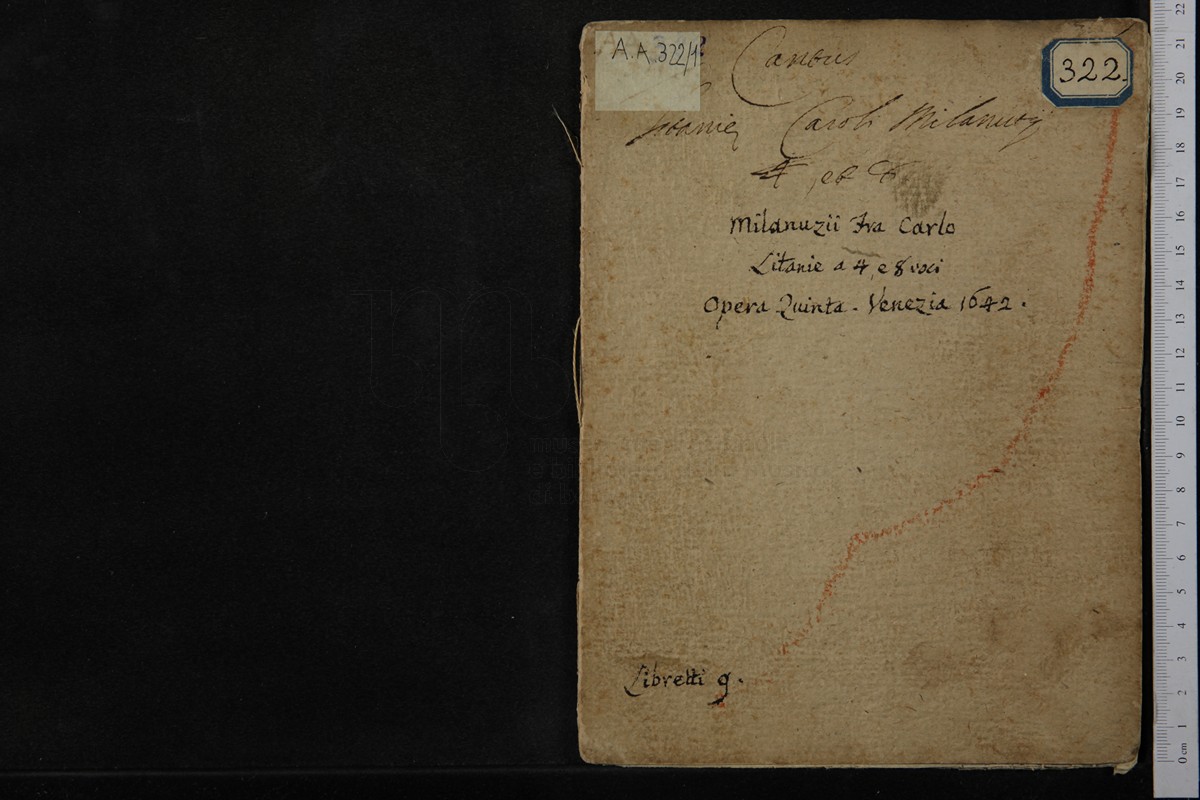 A.A.322/1
322.
Cantus
Litanie Caroli Milanutij
4, et 8
Milanuzii Fra Carlo
Litanie a 4, e 8 voci
Opera Quinta. Venezia 1642.
Libretti 9.
0 cm 1 2 3 4 5 6 7 8 9 10 11 12 13 14 15 16 17 18 19 20 21 22